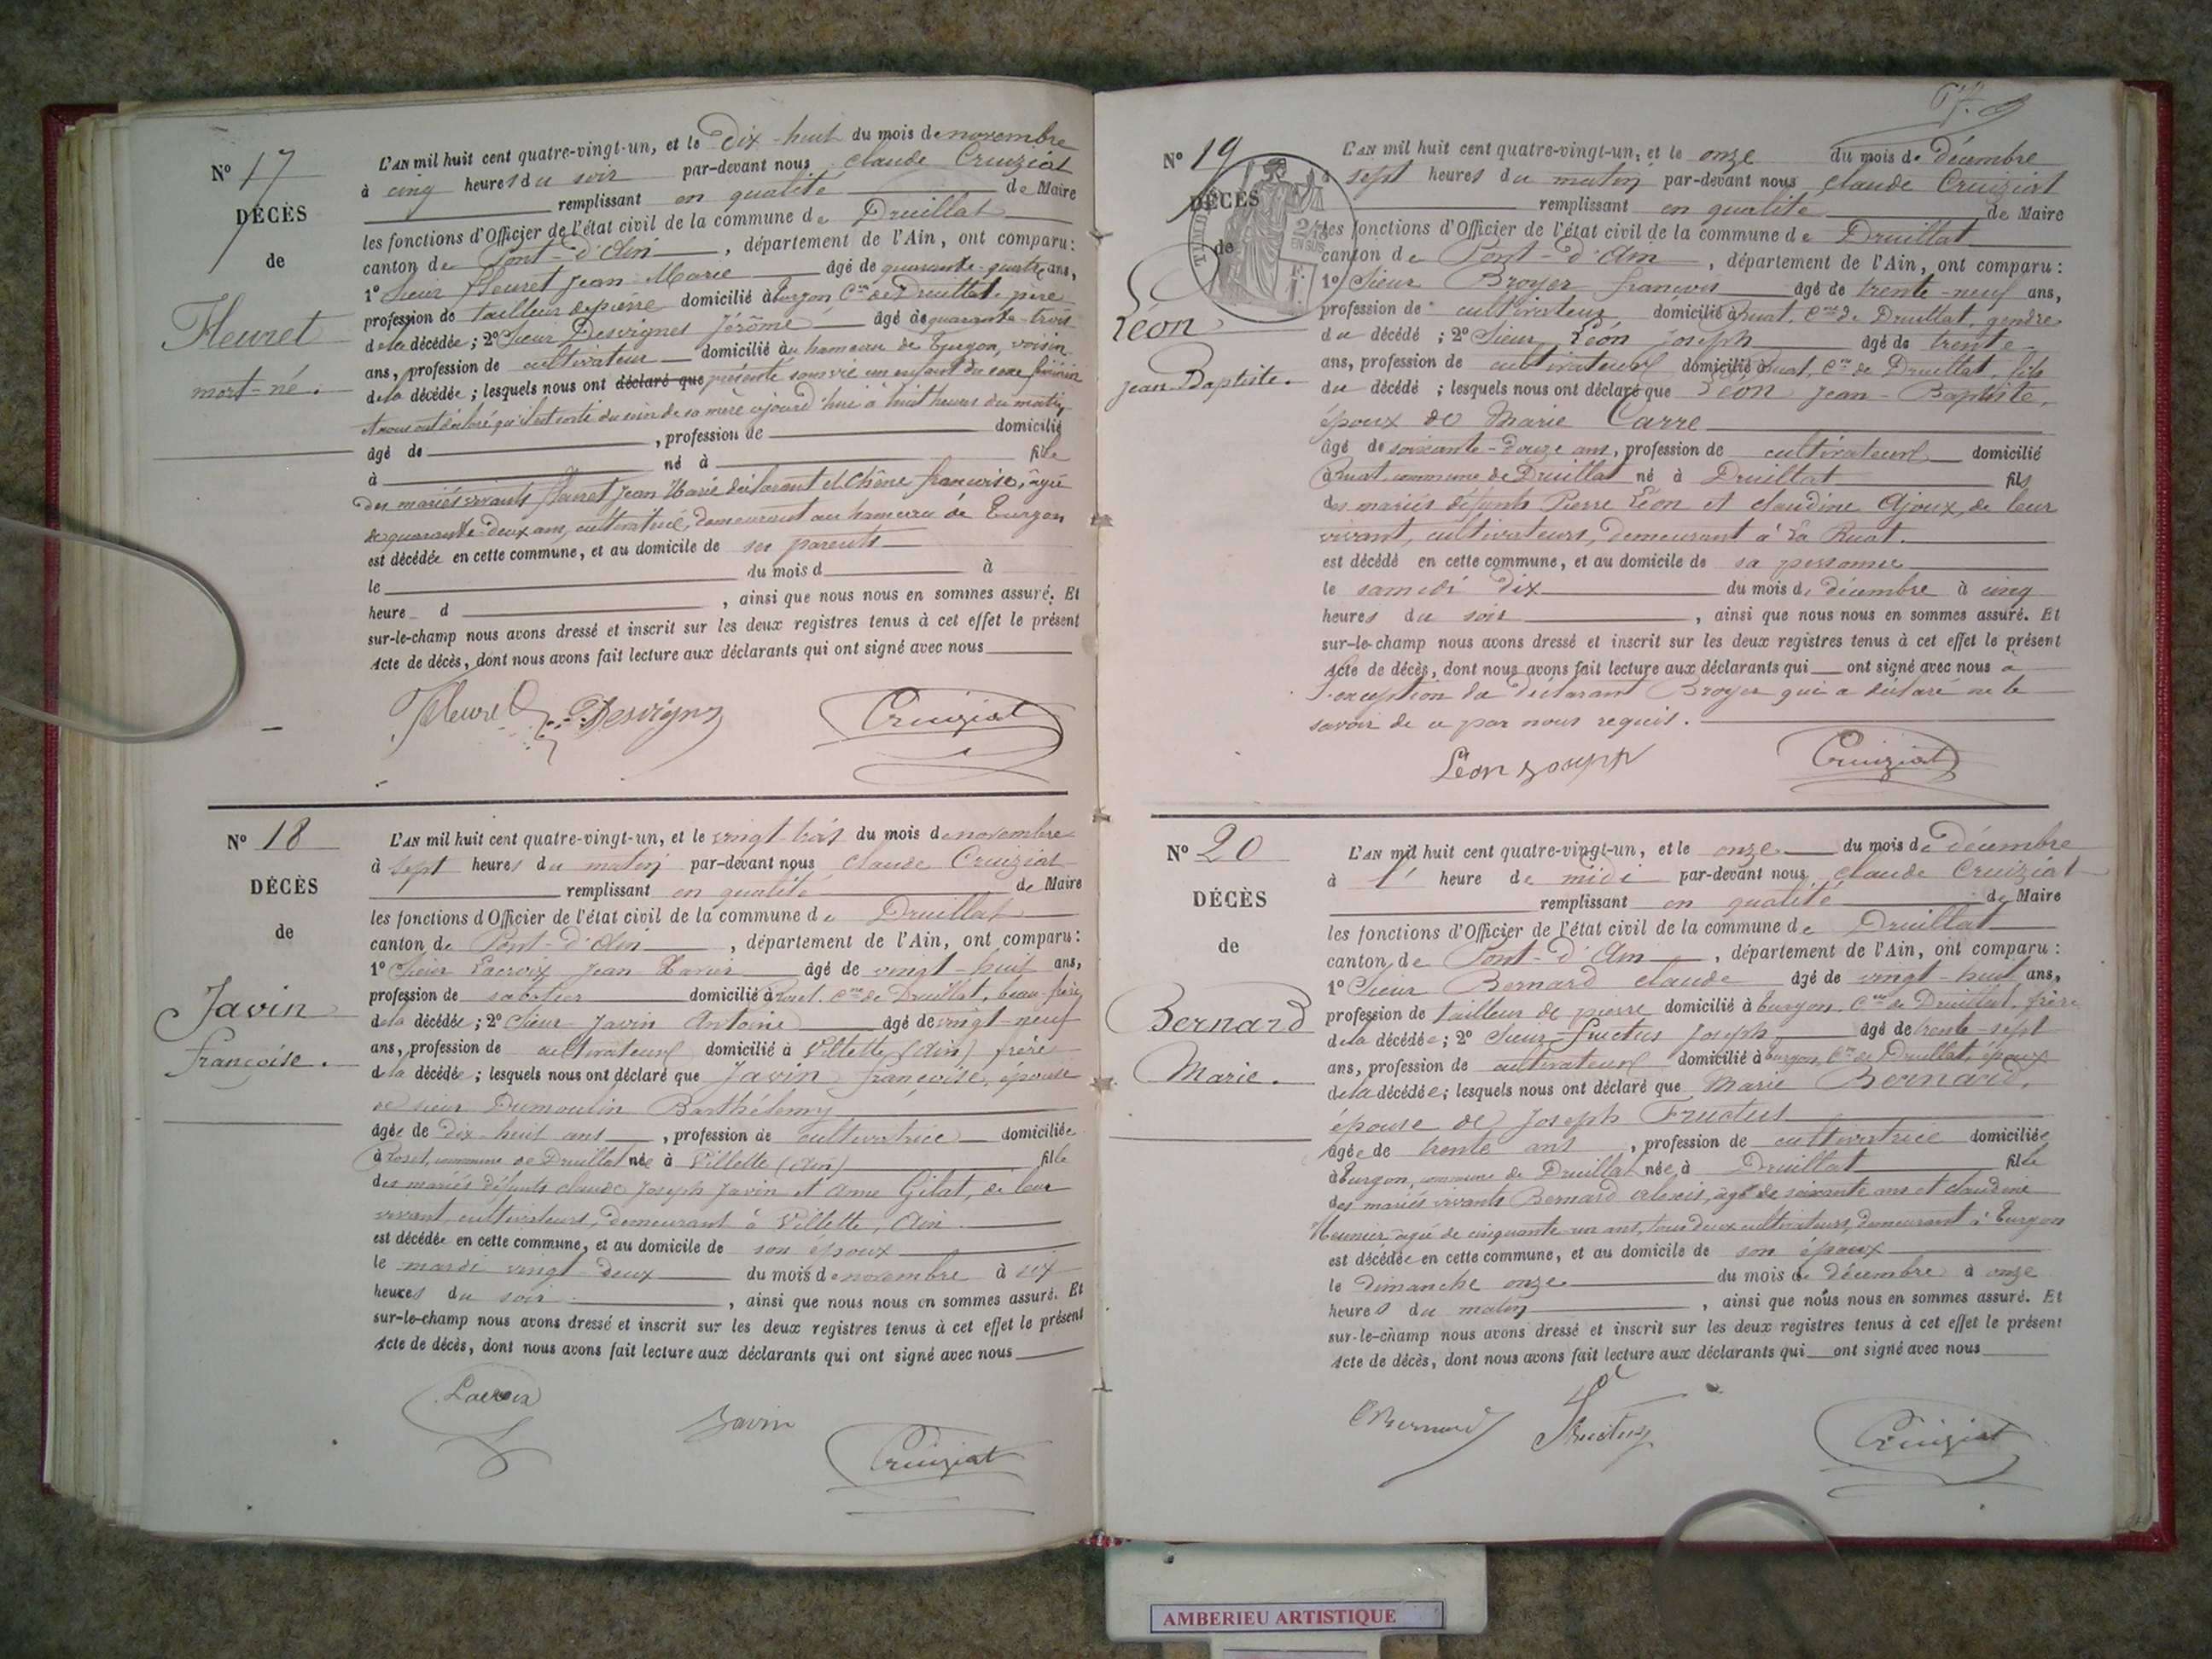 Nº 17
DÉCÈS
de
Fleuret
mort-né.
L'AN mil huit cent quatre-vingt-un, et le Dix-huit du mois de novembre
à cinq heures du soir par-devant nous Claude Cruiziat
remplissant en qualité de Maire
les fonctions d'Officier de l'état civil de la commune de Druillat
canton de Pont-d'Ain, département de l'Ain, ont comparu:
1º Sieur Fleuret Jean Marie âgé de quarante-quatre ans,
profession de tailleur de pierre domicilié à Turgon Cne de Druillat, père
de la décédée; 2º Sieur Desvignes Jérôme âgé de quarante-trois
ans, profession de cultivateur domicilié au hameau de Turgon, voisin
de la décédée; lesquels nous ont déclaré que présenté sans vie un enfant du sexe féminin
et nous ont déclaré qu'il est sorti du sein de sa mère aujourd'hui à huit heures du matin,
âgé de , profession de domicilié
à né à fille
des mariés vivants Fleuret Jean Marie déclarant et Chêne françoise, âgée
de quarante-deux ans, cultivatrice, demeurant au hameau de Turgon
est décédée en cette commune, et au domicile de ses parents
le du mois d à
heure d , ainsi que nous nous en sommes assuré. Et
sur-le-champ nous avons dressé et inscrit sur les deux registres tenus à cet effet le présent
Acte de décès, dont nous avons fait lecture aux déclarants qui ont signé avec nous
Fleuret Desvignes Cruiziat
Nº 18
DÉCÈS
de
Javin
françoise.
L'AN mil huit cent quatre-vingt-un, et le vingt-trois du mois de novembre
à sept heures du matin par-devant nous Claude Cruiziat
remplissant en qualité de Maire
les fonctions d'Officier de l'état civil de la commune de Druillat
canton de Pont-d'Ain, département de l'Ain, ont comparu:
1º Sieur Lacroix Jean Xavier âgé de vingt-huit ans,
profession de sabotier domicilié à Cne de Druillat, beau-frère
de la décédée; 2º Sieur Javin Antoine âgé de vingt-neuf
ans, profession de cultivateur domicilié à Villette (Ain) frère
de la décédée; lesquels nous ont déclaré que Javin françoise, épouse
de sieur Dumoulin Barthélemy
âgée de dix-huit ans, profession de cultivatrice domiciliée
à commune de Druillat née à Villette (Ain) fille
des mariés défunts claude Joseph Javin et Anne Gilat, de leur
vivant, cultivateurs, demeurant à Villette, Ain.
est décédée en cette commune, et au domicile de son époux
le mardi vingt-deux du mois de novembre à six
heures du soir, ainsi que nous nous en sommes assuré. Et
sur-le-champ nous avons dressé et inscrit sur les deux registres tenus à cet effet le présent
Acte de décès, dont nous avons fait lecture aux déclarants qui ont signé avec nous
Lacroix
Javin
Cruiziat
Nº 19
DÉCÈS
de
Léon
jean-Baptiste.
L'AN mil huit cent quatre-vingt-un, et le onze du mois de Décembre
à sept heures du matin par-devant nous Claude Cruiziat
remplissant en qualité de Maire
les fonctions d'Officier de l'état civil de la commune de Druillat
canton de Pont-d'Ain, département de l'Ain, ont comparu:
1º Sieur Broyer françois âgé de trente-neuf ans,
profession de cultivateur domicilié à Ruat, Cne de Druillat, gendre
du décédé; 2º Sieur Léon Joseph âgé de trente
ans, profession de cultivateur domicilié à Ruat, Cne de Druillat, fils
du décédé; lesquels nous ont déclaré que Léon Jean-Baptiste,
époux de Marie Carre
âgé de soixante-douze ans, profession de cultivateur domicilié
à Ruat commune de Druillat né à Druillat fils
des mariés défunts Pierre Léon et claudine Ajoux, de leur
vivant, cultivateurs, demeurant à La Ruat.
est décédé en cette commune, et au domicile de sa personne
le samedi dix du mois de décembre à cinq
heures du soir, ainsi que nous nous en sommes assuré. Et
sur-le-champ nous avons dressé et inscrit sur les deux registres tenus à cet effet le présent
Acte de décès, dont nous avons fait lecture aux déclarants qui ont signé avec nous à
l'exception du déclarant Broyer qui a déclaré ne le
savoir de ce par nous requis.
Léon Joseph Cruiziat
Nº 20
DÉCÈS
de
Bernard
Marie.
L'AN mil huit cent quatre-vingt-un, et le onze du mois de Décembre
à 1 heure de midi par-devant nous Claude Cruiziat
remplissant en qualité de Maire
les fonctions d'Officier de l'état civil de la commune de Druillat
canton de Pont-d'Ain, département de l'Ain, ont comparu:
1º Sieur Bernard claude âgé de vingt-huit ans,
profession de tailleur de pierre domicilié à Turgon, Cne de Druillat, frère
de la décédée; 2º Sieur Fructus Joseph âgé de trente-sept
ans, profession de cultivateur domicilié à Turgon, Cne de Druillat, époux
de la décédée; lesquels nous ont déclaré que Marie Bernard,
épouse de Joseph Fructus
âgée de trente ans, profession de cultivatrice domiciliée
à Turgon, commune de Druillat née à Druillat fille
des mariés vivants Bernard Alexis, âgé de soixante ans et claudine
Meunier âgée de cinquante-un ans, tous deux cultivateurs, demeurant à Turgon
est décédée en cette commune, et au domicile de son époux
le Dimanche onze du mois de Décembre à onze
heures du matin, ainsi que nous nous en sommes assuré. Et
sur-le-champ nous avons dressé et inscrit sur les deux registres tenus à cet effet le présent
Acte de décès, dont nous avons fait lecture aux déclarants qui ont signé avec nous
Bernard Fructus Cruiziat
AMBERIEU ARTISTIQUE